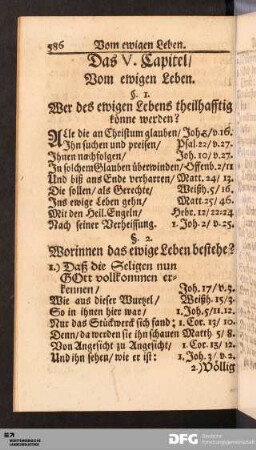 586 Vom ewigen Leben.
Das V. Capitel/
Vom ewigen Leben.
§. 1.
Wer des ewigen Lebens theilhafftig
könne werden?
Alle die an Christum glauben/ Joh. 3/ v. 16.
Ihn suchen und preisen/ Psal. 22/ v. 27.
Ihnen nachfolgen/ Joh. 10/ v. 27.
In solchem Glauben überwinden/ Offenb. 2/11
Und biß ans Ende verharren/ Matt. 24/ 13.
Die sollen/ als Gerechte/ Weißh. 5/ 16.
Ins ewige Leben gehn/ Matt. 25/ 46.
Mit den Heil. Engeln/ Hebr. 12/ 22:24
Nach seiner Verheissung. 1. Joh. 2/ v. 25.
§. 2.
Worinnen das ewige Leben bestehe?
1.) Daß die Seligen nun
GOtt vollkommen er-
kennen/ Joh. 17/ v. 3.
Wie aus dieser Wurtzel/ Weißh. 15/ 3.
So in ihnen hier war/ 1. Joh. 5/ 11. 12.
Nur das Stückwerck sich fand; 1. Cor. 13/ 10.
Denn/ da werden sie ihn schauen Matth. 5/ 8.
Von Angesicht zu Angesicht/ 1. Cor. 13/ 12.
Und ihn sehen/ wie er ist: 1. Joh. 3/ v. 2.
2.) Völlig
DFG Deutsche
Forschungsgemeinschaft